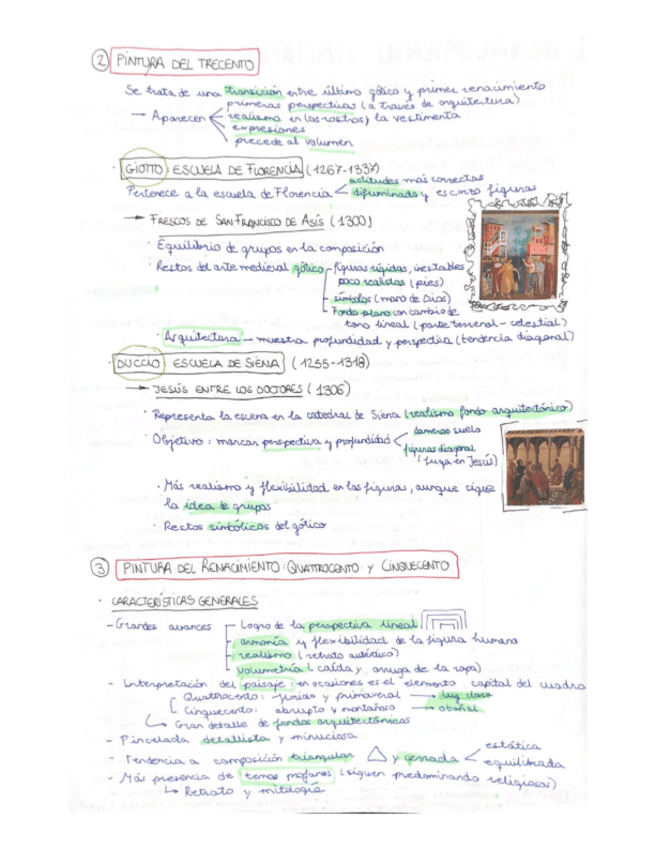 ② PINTURA DEL TRECENTO
Se trata de una transición entre último gótico y primer renacimiento
→ Aparecen
primeras perspectivas (a través de arquitectura)
realismo en (los rostros) la vestimenta
expresiones
precede al volumen
· GIOTTO: ESCUELA DE FLORENCIA (1267-1337)
Pertenece a la escuela de Florencia
actitudes más correctas
difuminado y escorzo figuras
→ FRESCOS DE SAN FRANCISCO DE ASÍS (1300)
· Equilibrio de grupos en la composición
· Restos del arte medieval gótico
figuras rígidas, inestables
poco realistas (pies)
símbolos (mano de Dios)
Fondo plano con cambio de
tono lineal (parte terrenal - celestial)
· Arquitectura — muestra profundidad y perspectiva (tendencia diagonal)
· DUCCIO: ESCUELA DE SIENA (1255-1318)
→ JESÚS ENTRE LOS DOCTORES (1306)
· Representa la escena en la catedral de Siena (realismo fondo arquitectónico)
· Objetivo: marcar perspectiva y profundidad
dameros suelo
figuras diagonal
(fuga en Jesús)
· Más realismo y flexibilidad en las figuras, aunque sigue
la idea de grupos
· Restos simbólicos del gótico
③ PINTURA DEL RENACIMIENTO: QUATTROCENTO Y CINQUECENTO
· CARACTERÍSTICAS GENERALES
- Grandes avances
Logro de la perspectiva lineal
armonía y flexibilidad de la figura humana
realismo (retrato auténtico)
volumetría (caída y arruga de la ropa)
- Interpretación del paisaje: en ocasiones es el elemento capital del cuadro
Quattrocento: florido y primaveral → luz clara
Cinquecento: abrupto y montañoso → otoñal
↳ Gran detalle de fondos arquitectónicos
- Pincelada detallista y minuciosa
- Tendencia a composición triangular △ y cerrada
estática
equilibrada
- Más presencia de temas profanos (siguen predominando religiosos)
↳ Retrato y mitología